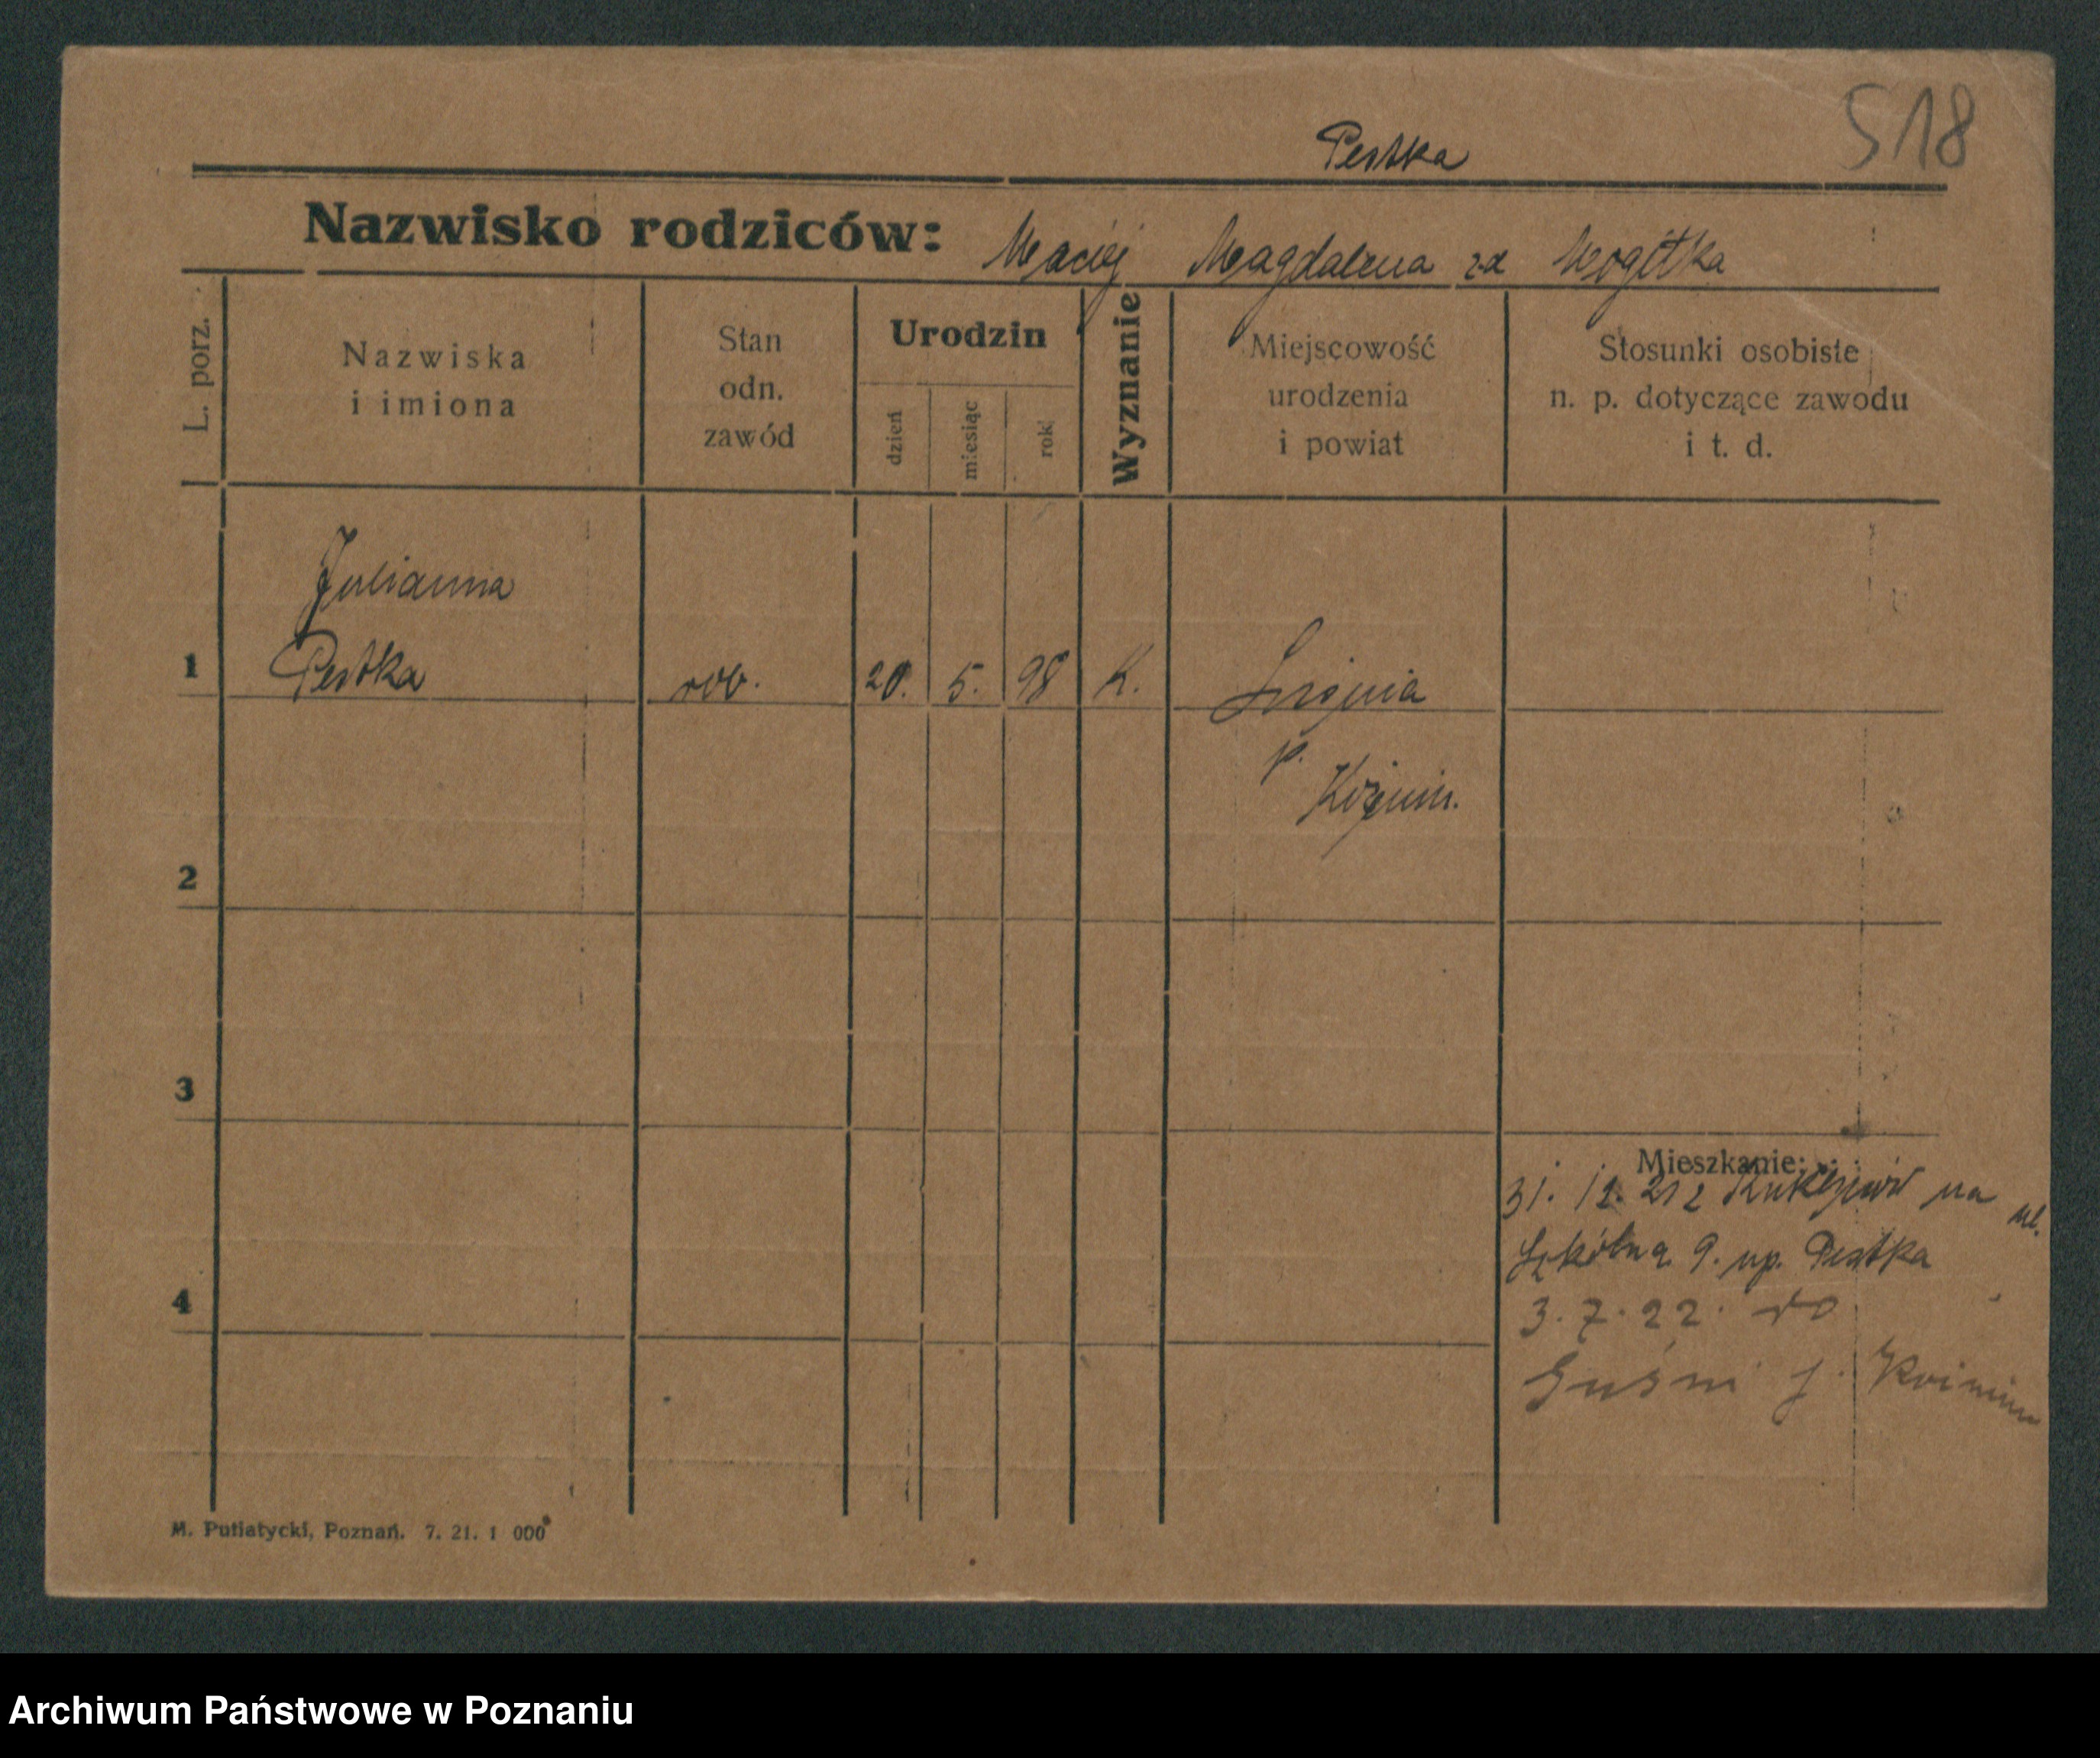 518
Pestka
Nazwisko rodziców: Maciej Magdalena zd
L. porz.
Nazwiska
i imiona
Stan
odn.
zawód
Urodzin
dzień
miesiąc
rok
Wyznanie
Miejscowość
urodzenia
i powiat
Stosunki osobiste
n. p. dotyczące zawodu
i t. d.
Julianna
1 Pestka rob. 20. 5. 98 K.
p.
2
3
Mieszkanie:
31. 12. 21 z na ul.
Szkólną 9. up. Pestka
4
3. 7. 22. do
M. Putiatycki, Poznań. 7. 21. 1 000
Archiwum Państwowe w Poznaniu